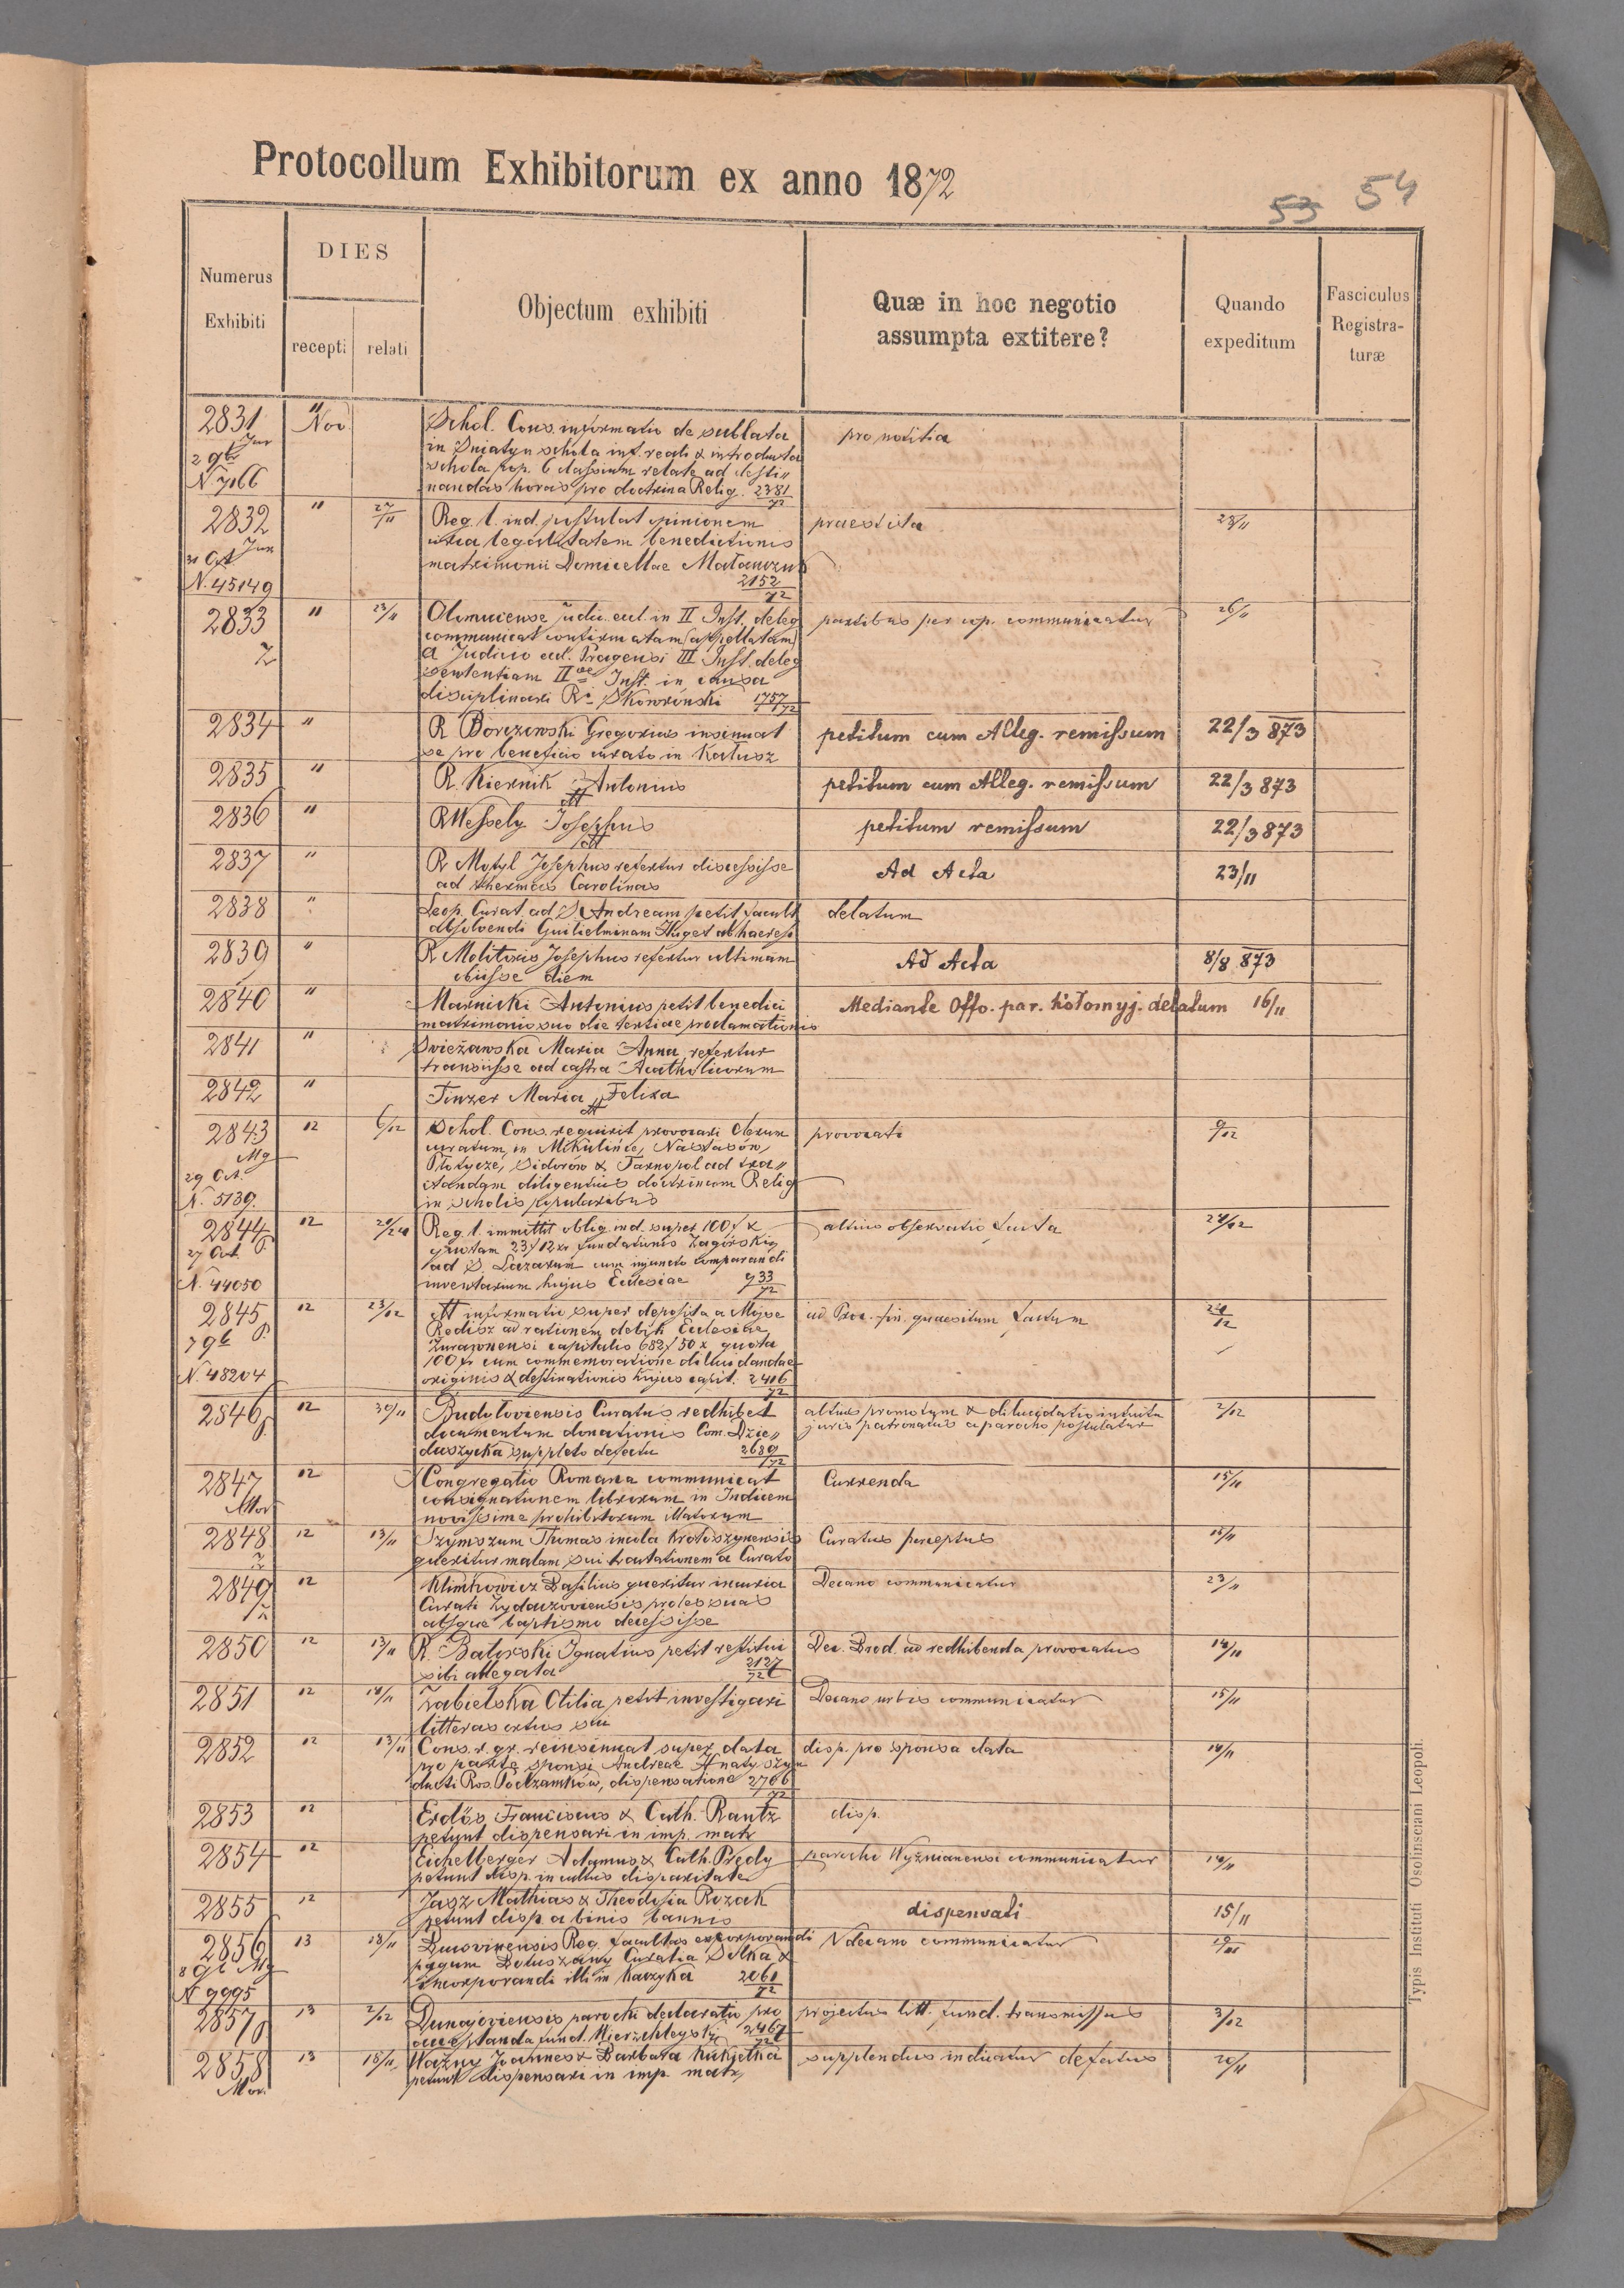 Protocollum Exhibitorum ex anno 1872
53 54
Numerus
Exhibiti
DIES
recepti
relati
Objectum exhibiti
Quæ in hoc negotio
assumpta extitere?
Quando
expeditum
Fasciculus
Registra-
turæ
2831 " Nov Schol. Cons. informatio de sublata pro notitia
in Sniatyn schola inf. reali & introducta
schola pop. 6 classium relate ad desti„
N 7166 nandas horas pro doctrina Relig. 2381/72
2832 " 22/11 Reg. l. ind. postulat opinionem praestita 23/11
circa legalitatem benedictionis
matrimonii Domicellae
N. 45149 2152/72
2833 " 23/11 Olomucense judic. eccl. in II Inst. deleg partibus per cop. communicatur 26/11
communicat confirmatam (appellatam)
a Judicio eccl. Pragensi III Inst. deleg
sententiam II Inst. in causa
disciplinari Ri Skowroński 1757/72
2834 " R Borczewski Gregorius insinuat petitum cum Alleg. remissum 22/3 873
se pro beneficio curato in Kałusz
2835 " R. Kiernik Antonius petitum cum Alleg. remissum 22/3 873
2836 " R Wessely Josephus petitum remissum 22/3 873
2837 " R Motyl Josephus refertur discessisse Ad Acta 23/11
ad thermas Carolinas
2838 " Leop. Curat. ad S Andream petit facult delatum
absolvendi Guilielminam Huget ab haeresi
2839 " R Molitoris Josephus refertur ultimam Ad Acta 8/8 873
obiisse diem
2840 " Marnicki Antonius petit benedici Mediante Offo. par. Kołomyj. delatum 16/11
matrimonio suo die tertiae proclamationis
2841 " Świeżawska Maria Anna refertur
transiisse ad castra Acatholicorum
2842 " Tinzer Maria Felixa
2843 12 6/12 Schol. Cons. requirit provocari Clerum provocati 9/12
curatum in Mikulińce, Nastasów,
29 Oct. Płotycze, Sidorów & Tarnopol ad tra„
N. 5139. ctandam diligentius doctrinam Relig
in scholis popularibus
2844 12 Reg. l. immittit oblig. ind. super 100 f & altius observatio facta 24/12
27 Oct quotam 23 f 12 xr fundationis Zagórski
ad S. Lazarum cum injuncto comparandi
N. 44050 inventarium hujus Ecclesiae 933/72
2845 12 23/12 informatio super deposita a Mojse ad Proc. fin. quaesitum factum 24/12
Redisz ad rationem debiti Ecclesiae
Żurawnensi capitalis 682 f 50 x quota
100 fr cum commemoratione dilucidandae
N. 48204 originis & destinationis hujus capit. 2406/72
2846 12 30/11 Budyłoviensis Curatus redhibet altius promotum & dilucidatio intuitu 2/12
documentum donationis Com. Dzie„ juris patronatus a parocho postulatur
duszycka suppleto defectu 2689/72
2847 12 Congregatio Romana communicat Currenda 15/11
consignationem librorum in Indicem
novissime prohibitorum illatorum
2848 12 13/11 Szymszum Thomas incola Krotoszynensis Curatus perceptus 15/11
queritur malam sui tractationem a Curato
2849 12 Klimkowicz Basilius queritur incuria Decano communicatur 23/11
Curati Żydaczoviensis proles suas
absque baptismo decessisse
2850 12 13/11 R. Batorski Ignatius petit restitui Dec. Brod. ad redhibenda provocatus 14/11
sibi allegata 2127/72
2851 12 14/11 Zabielska Otilia petit investigari Decano urbis communicatur 15/11
litteras ortus sui
2852 12 13/11 Cons. r. gr. reinsinuat super data disp. pro sponsa data 14/11
pro parte sponsi Andreae Hnatyszyn
ducti Ros. Podzamków, dispensatione 2706/72
2853 12 Erdös Franciscus & Cath. Rantz disp.
petunt dispensari in imp. matr
2854 12 Eichelberger Adamus & Cath. Predy parocho Wyżnianensi communicatur 14/11
petunt disp. in cultus disparitate
2855 12 Jasz Mathias & Theodosia Rozak dispensati 15/11
petunt disp. a binis bannis
2856 13 18/11 Bucovinensis Reg. facultas excorporandi decano communicatur
pagum Curatia Solka &
N 9995 incorporandi illi in Kaczyka 2061/72
2857 13 2/12 Dunajoviensis parochi declaratio pro projectus litt. fund. transmissus 3/12
acceptanda fund. 2467/72
2858 13 15/11 Ważny Joannes & Barbara supplendus indicatur defectus 20/11
petunt dispensari in imp. matr,
Typis Instituti Ossolinsciani Leopoli.